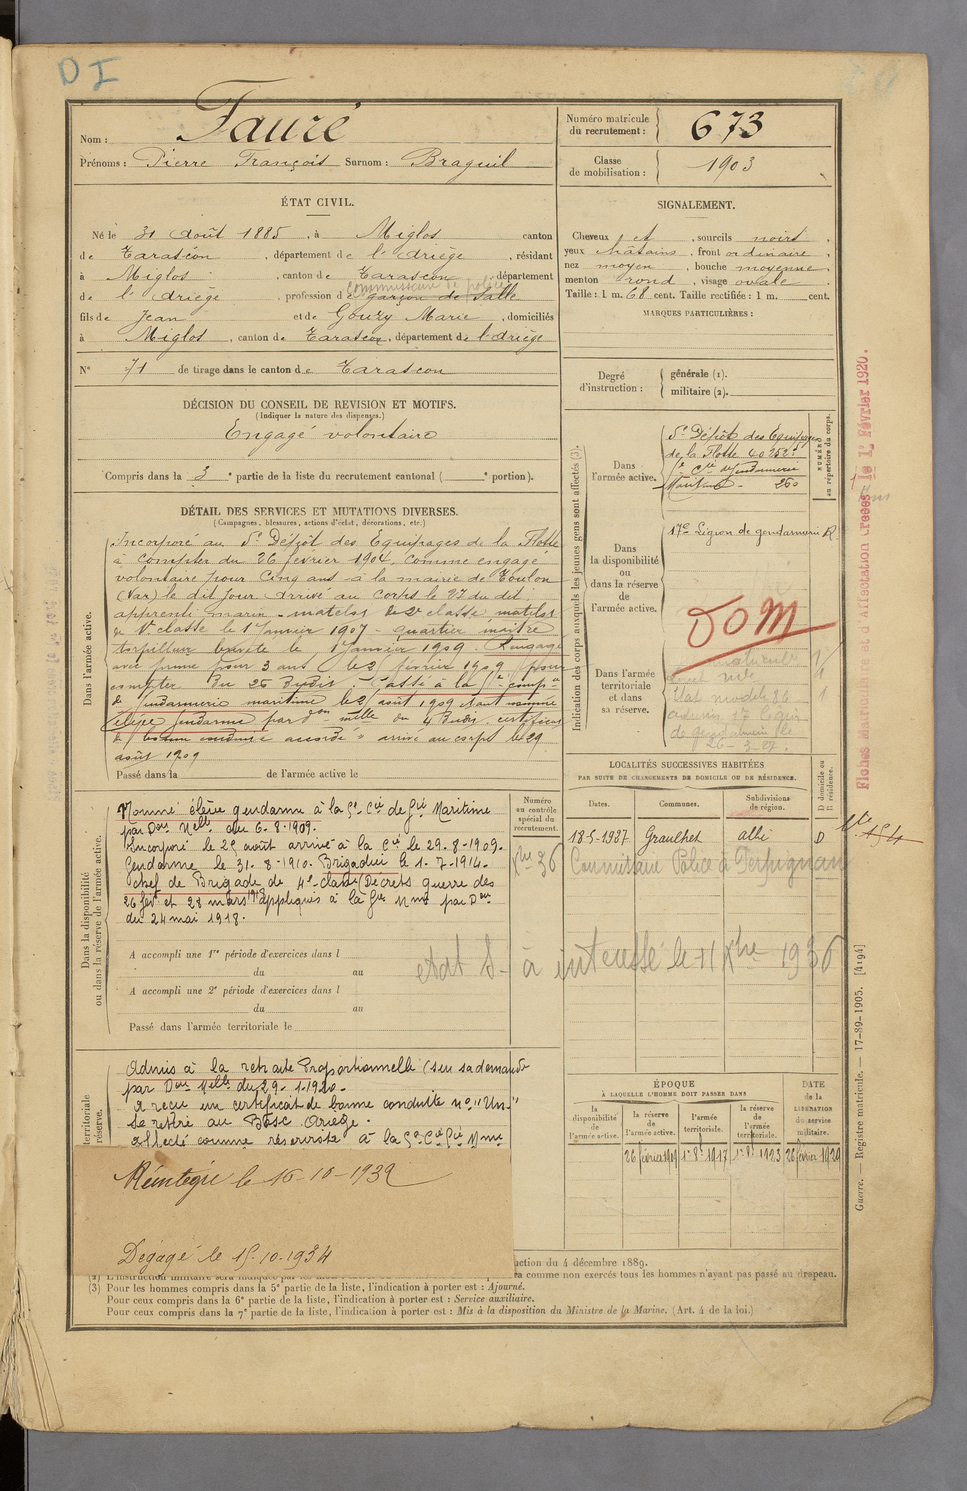 DI
Nom : Fauré
Prénoms : Pierre François Surnom : Braguil
Numéro matricule du recrutement : 673
Classe de mobilisation : 1903
ÉTAT CIVIL.
Né le 31 août 1885, à Miglos canton
de Tarascon, département de l'Ariège, résidant
à Miglos, canton de Tarascon, département
commissaire de police
de l'Ariège, profession de garçon de salle
fils de Jean et de Gouzy Marie, domiciliés
à Miglos, canton de Tarascon, département de l'Ariège
N° 71 de tirage dans le canton de Tarascon
SIGNALEMENT.
Cheveux et, sourcils noirs,
yeux châtains, front ordinaire,
nez moyen, bouche moyenne,
menton rond, visage ovale.
Taille : 1 m. 68 cent. Taille rectifiée : 1 m. cent.
MARQUES PARTICULIÈRES :
Degré d'instruction : générale (1).
militaire (2).
DÉCISION DU CONSEIL DE REVISION ET MOTIFS.
(Indiquer la nature des dispenses.)
Engagé volontaire
Compris dans la 3e partie de la liste du recrutement cantonal ( e portion).
DÉTAIL DES SERVICES ET MUTATIONS DIVERSES.
(Campagnes, blessures, actions d'éclat, décorations, etc.)
Dans l'armée active.
Incorporé au 5e Dépôt des Équipages de la Flotte
à compter du 26 février 1904, comme engagé
volontaire pour Cinq ans à la mairie de Toulon
(Var) le dit jour. Arrivé au corps le 27 du dit,
apprenti marin - matelot de 2e classe, matelot
de 1e classe le 1 Janvier 1907 - quartier maître
torpilleur breveté le 1 Janvier 1909. Rengagé
avec prime pour 3 ans le 25 février 1909 pour
compter du 26 dudit. Passé à la 5e compie
de gendarmerie maritime le 29 août 1909 étant nommé
élève gendarme par don melle du 4 dudit. certificat
de bonne conduite accordé. arrivé au corps le 29
août 1909
Passé dans la de l'armée active le
Indication des corps auxquels les jeunes gens sont affectés (3).
Dans l'armée active.
5e Dépôt des Équipages
de la Flotte 40252
5e Cie de Gendarmerie
Maritime - 260
NUMÉRO au répertoire du corps.
Dans la disponibilité ou dans la réserve de l'armée active.
17e Légion de gendarmerie R
DOM
Dans l'armée territoriale et dans sa réserve.
État modèle 86
26-3-27.
Fiches matricule et d'Affectation Créées le 1r Février 1920.
LOCALITÉS SUCCESSIVES HABITÉES
PAR SUITE DE CHANGEMENTS DE DOMICILE OU DE RÉSIDENCE.
Dates. Communes. Subdivisions de région. D domicile ou R résidence.
18-5-1927 Graulhet Albi D
Xbre 36 Commissaire Police à Perpignan
état S- à intéressé le 11 Xbre 1936
Dans la disponibilité ou dans la réserve de l'armée active.
Numéro au contrôle spécial du recrutement.
Nommé élève gendarme à la 5e Cie de Gie Maritime
par Don Melle du 6-8-1909.
Incorporé le 29 août arrivé à la Cie le 29-8-1909.
Gendarme le 31-8-1910. Brigadier le 1-7-1914.
Chef de Brigade de 4e classe (Décrets guerre des
26 févr et 28 mars 191 appliqués à la Gie Mme par Don
du 24 mai 1918.
A accompli une 1re période d'exercices dans l
du au
A accompli une 2e période d'exercices dans l
du au
Passé dans l'armée territoriale le
territoriale réserve.
Admis à la retraite Proportionnelle (sur sa demande
par Don Melle du 29-1-1920.
A reçu un certificat de bonne conduite n° "Un"
Se retire au Bosc Ariège.
affecté comme réserviste à la 5e Cie Gie Mme
Réintégré le 16-10-1932
Dégagé le 15-10-1934
ÉPOQUE
À LAQUELLE L'HOMME DOIT PASSER DANS
la disponibilité de l'armée active. la réserve de l'armée active. l'armée territoriale. la réserve de l'armée territoriale.
DATE de la LIBÉRATION du service militaire.
26 février 1909 1er 8bre 1917 1er 8bre 1923 26 février 1929
Guerre. — Registre matricule. — 17-89-1905. [4194]
uction du 4 décembre 1889.
comme non exercés tous les hommes n'ayant pas passé au drapeau.
(3) Pour les hommes compris dans la 5e partie de la liste, l'indication à porter est : Ajourné.
Pour ceux compris dans la 6e partie de la liste, l'indication à porter est : Service auxiliaire.
Pour ceux compris dans la 7e partie de la liste, l'indication à porter est : Mis à la disposition du Ministre de la Marine. (Art. 4 de la loi.)